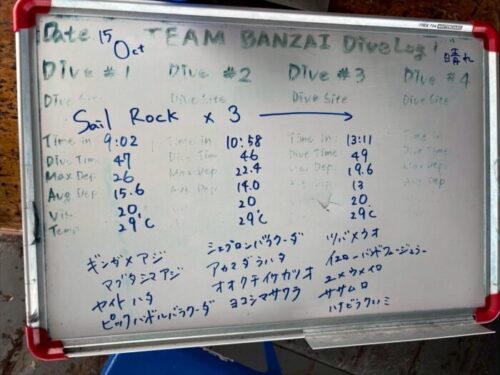 Date 15 Oct TEAM BANZAI Dive Log! 晴れ
Dive #1 Dive #2 Dive #3 Dive #4
Dive Site Dive Site
Sail Rock × 3 →
Time in 9:02 Time in 10:58 Time in 13:11 Time in
Dive Time 47 Dive Time 46 Dive Time 49 Dive Time
Max Dep 26 Max Dep 22.4 Max Dep 19.6 Max Dep
Avg Dep 15.6 Avg Dep 14.0 Avg Dep 13
Vis 20 20 20
Temp 29°C 29°C 29°C
ギンガメアジ シェブロンバラクーダ ツバメウオ
マブタシマアジ アカマダラハタ イエローバンドフュージュラー
ヤイトハタ オオクチイケカツオ ユメウメイロ
ピックハンドルバラクーダ ヨコシマサワラ ササムロ
ハナビラクマノミ